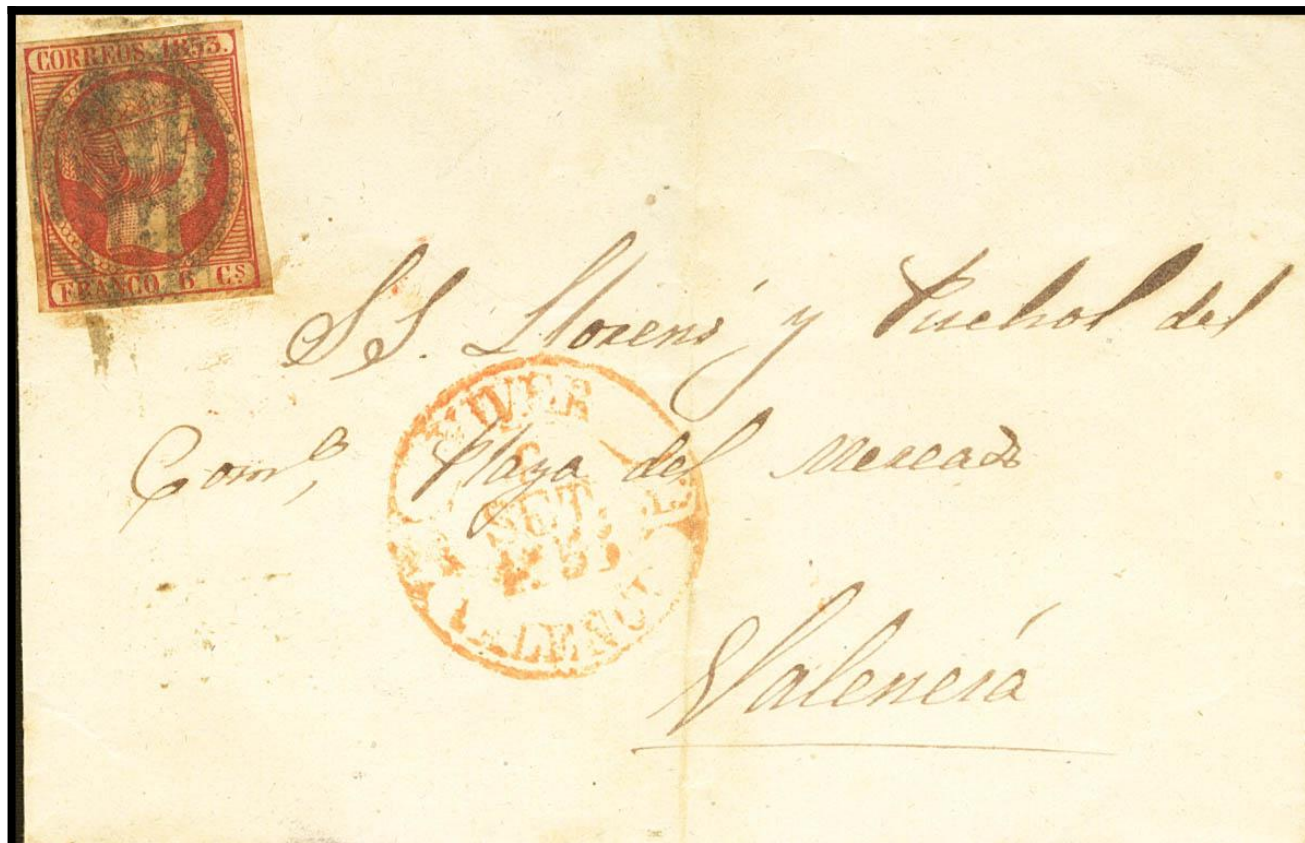 CORREOS 1853.
FRANCO. 6 Cs
SS. Llorens y Puchol del
Comº, Plaza del Mercado
VIVER
SET.
VALENCIA
Valencia